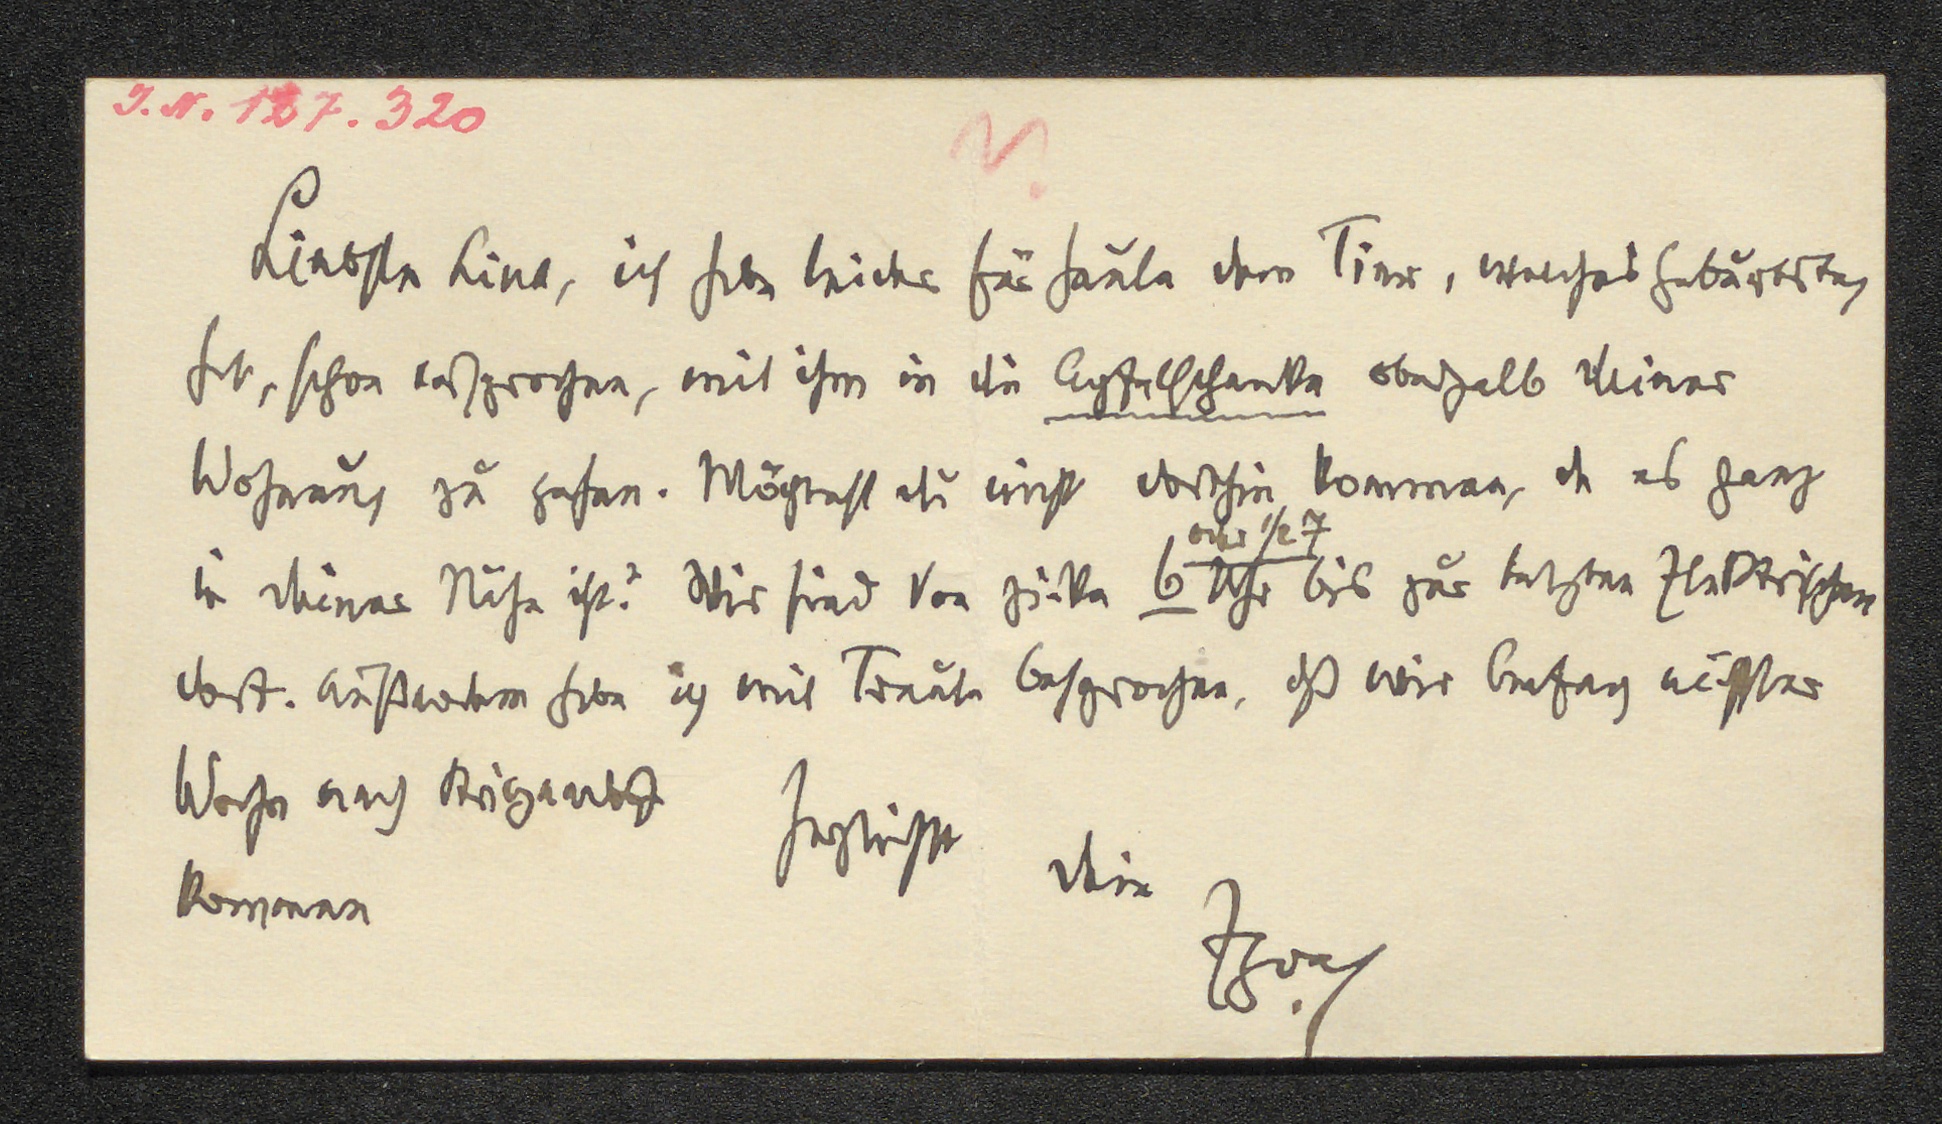 I. N. 127.320
Liebste Lina, ich habe leider für heute dem Tier, welches Geburtstag
hat, schon versprochen, mit ihm in die Apfelschenke oberhalb deiner
Wohnung zu gehen. Möchtest du nicht dorthin kommen, da es ganz
oder 1/2 7
in deiner Nähe ist? Wir sind von zirka 6 Uhr bis zur letzten Elektrischen
dort. Außerdem habe ich mit Traute besprochen, daß wir Anfang nächster
Woche nach
kommen
Herzlichst
dein
Egon